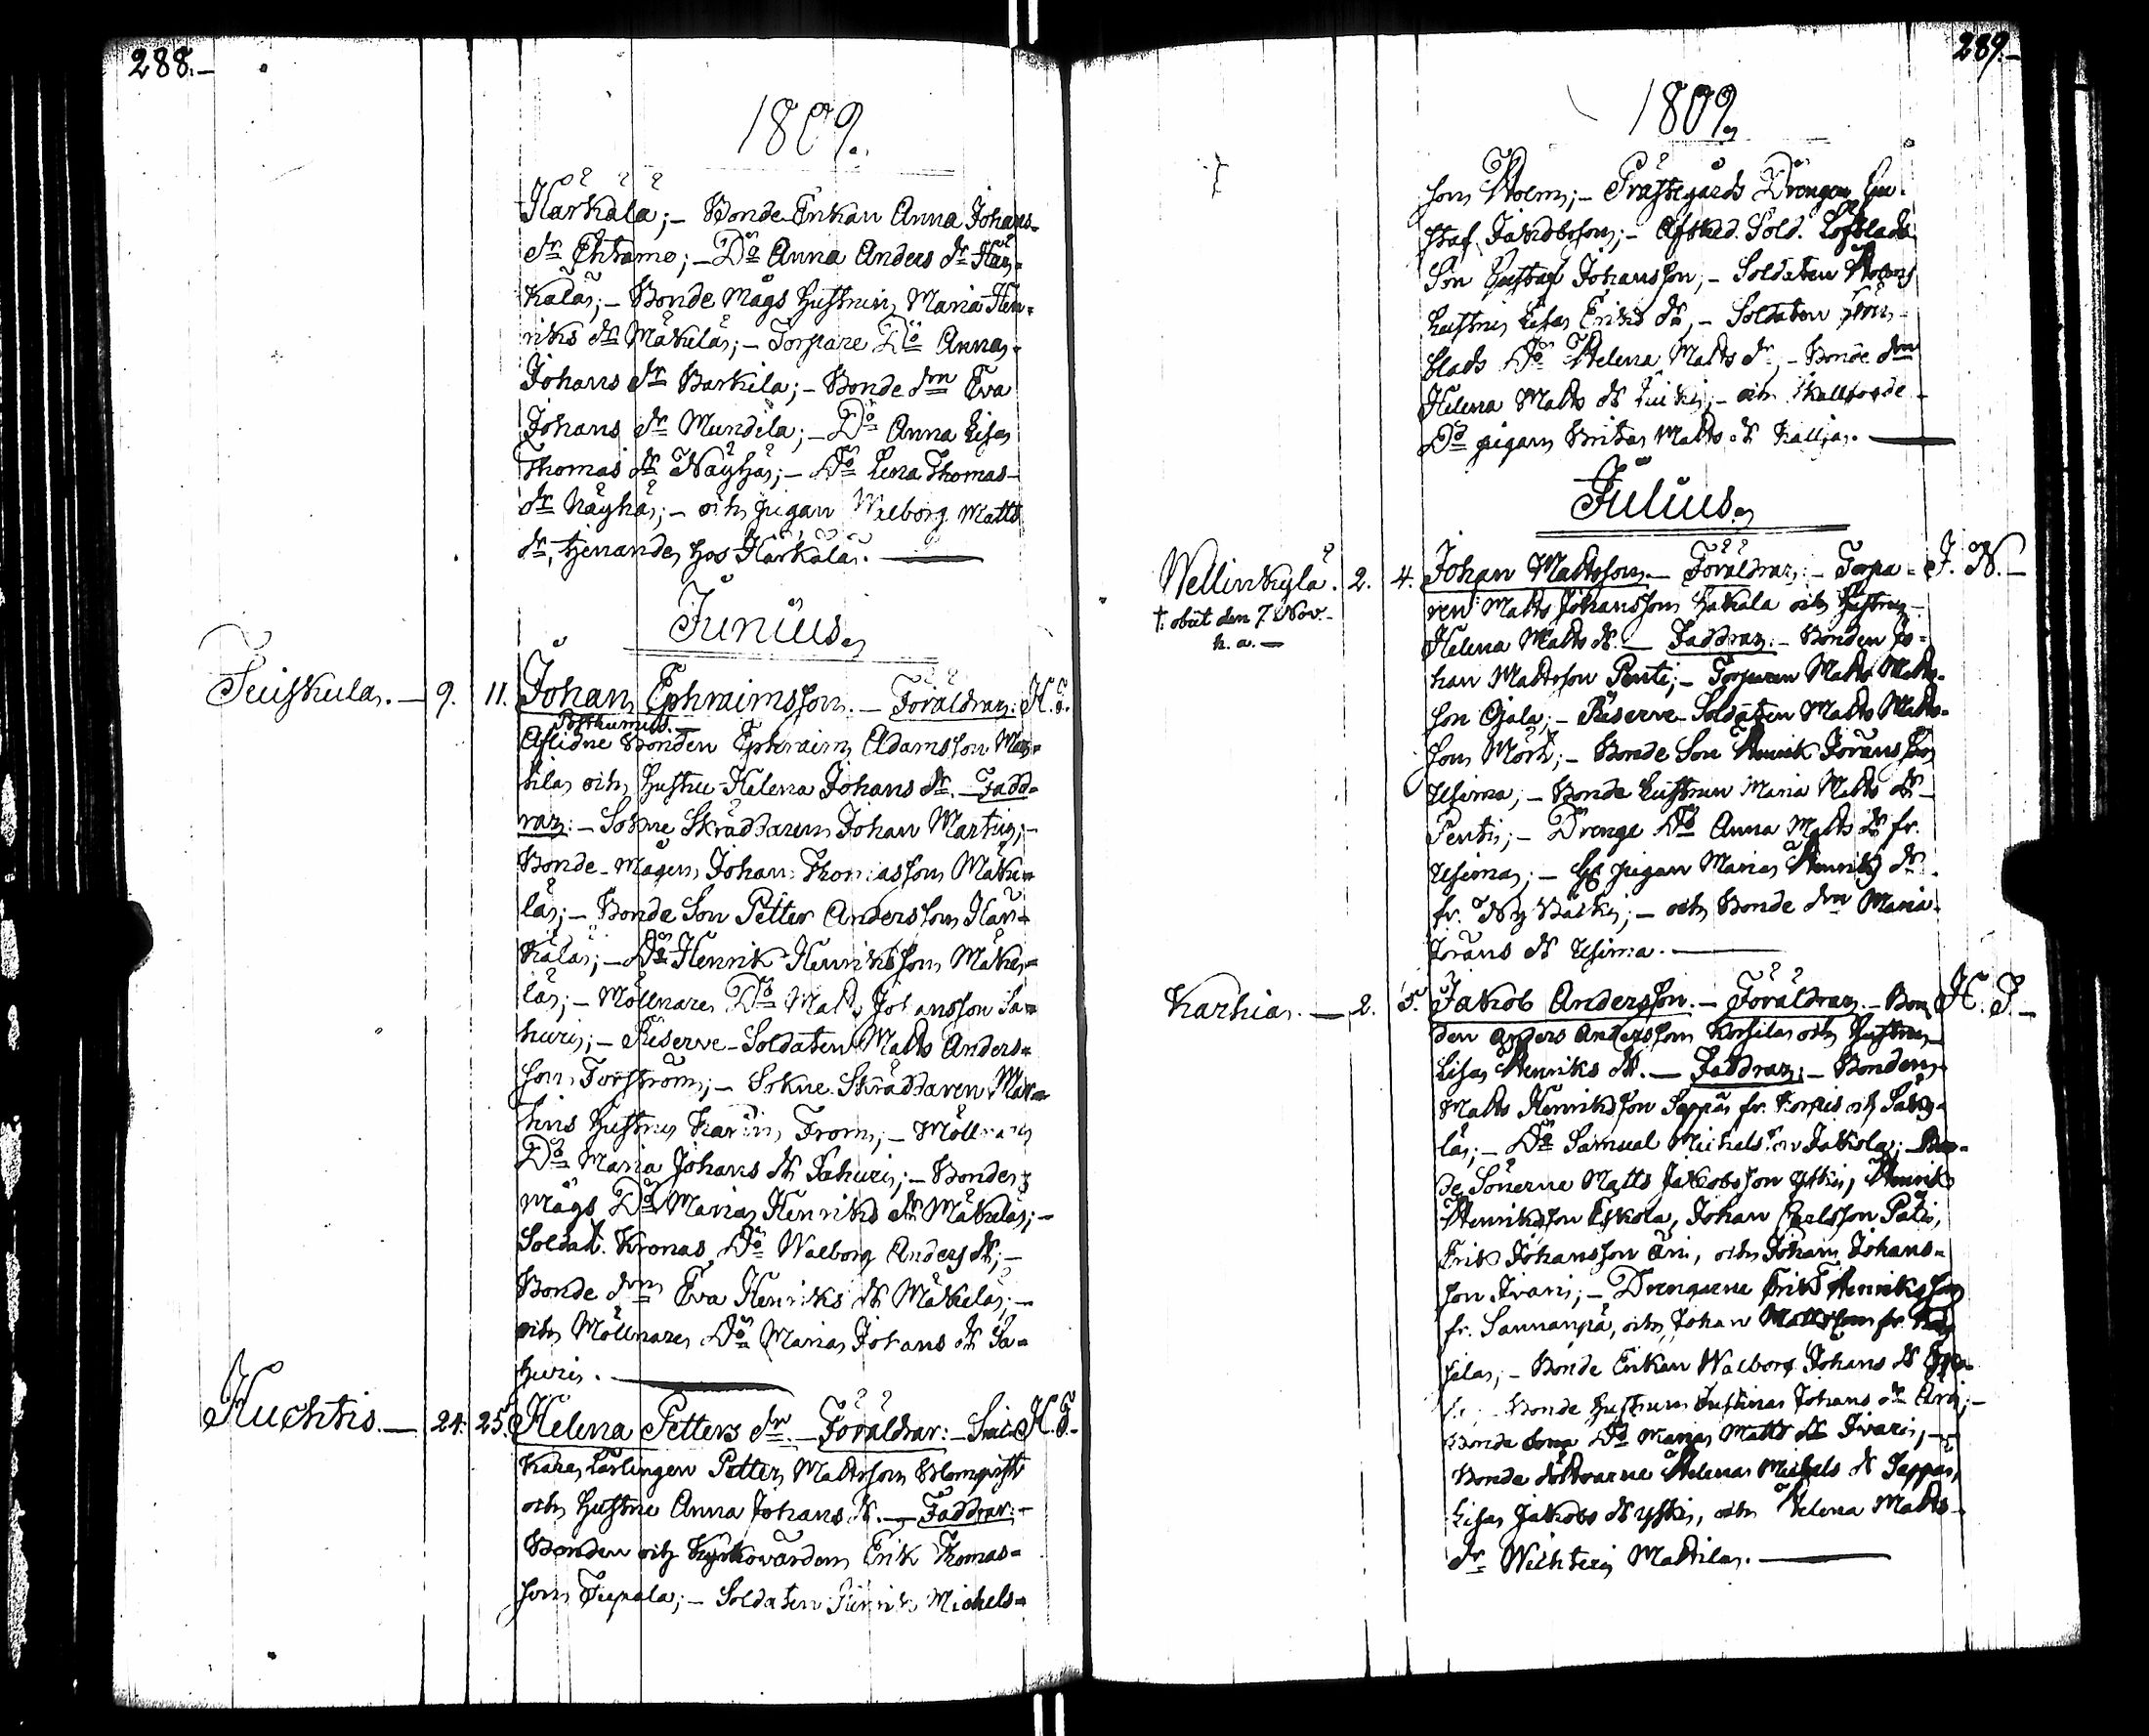 288.-
1809.
Härkälä; - Bonde Enkan Anna Johans-
dr Ehtamo; - Do Anna Anders dr Här-
kälä; - Bonde Mågs Hustrun Maria Hen-
riks dr Mäkelä; - Torpare Do Anna
Johans dr Barkila; - Bonde drn Eva
Johans dr Mundila; - Do Anna Lisa
Thomas dr Näyhä; - Do Lena Thomas-
dr Näyhä; - och pigan Walborg Matts
dr, tjenande hos Härkälä.
Junius.
Suiskula. - 9. 11. Johan Ephraimsson. - Föräldrar: H. S.
Posthumus.
Aflidne Bonden Ephraim Adamsson
och Hustru Helena Johans dr. - Fadd-
rar: - Sokne Skräddaren Johan Martin; -
Bonde-Mågen Johan Thomasson Mäke-
lä; - Bonde Son Petter Andersson Här-
kälä; - Do Henrik Henriksson Mäke-
lä; - Möllnare Do Matts Johansson Sa-
huri; - Reserve-Soldaten Matts Anders-
son Forström; - Sokne Skräddaren Mar-
tins Hustru Karin From; - Möllnare
Do Maria Johans dr Sahuri; - Bonde
Mågs Do Maria Henriks dr Mäkelä; -
Soldat. Kronas Do Walborg Anders dr; -
Bonde drn Eva Henriks dr Mäkelä; -
och Möllnare Do Maria Johans dr Sa-
huri.
Huchtis. - 24. 25. Helena Petters dr. - Föräldrar: - H. S.
Karlingen Petter Mattsson Blomqvist
och Hustru Anna Johans dr. - Faddrar: -
Bonden och Kyrkovärden Erik Thomas-
son; - Soldaten Henrik Michels-
289.-
1809.
son Holm; - Prästegårds Drengen Gu-
staf Jakobsson; - Afsked. Sold. Löfblads
Son Gustaf Johansson; - Soldaten Holms
Hustru Lisa Eriks dr, - Soldaten
blads Do Helena Matts dr, - Bonde drn
Helena Matts dr; - och
Do pigan Brita Matts dr Kallja.
Julius.
Wellinkylä. 2. 4. Johan Mattsson. - Föräldrar: - Torpa- J. N. -
† obiit den 7. Nov. -
h. a. -
ren Matts Johansson Hakala och Hustru
Helena Matts dr. - Faddrar: - Bonden Jo-
han Mattsson Penti; - Torparen Matts Matts-
son Ojala; - Reserve Soldaten Matts Matts-
son Mörk; - Bonde Son Henrik Göransson
Usima; - Bonde Hustrun Maria Matts dr
Penti; - Drenge Do Anna Matts dr fr.
Usima; - pigan Maria Henriks dr
fr. Ny Bäcki; - och Bonde drn Maria
Görans dr Usima.
Karhia. - 2. 5. Jakob Andersson. - Föräldrar. - Bon H. S. -
den Anders Andersson och Hustru
Lisa Henriks dr. - Faddrar: - Bonden
Matts Henriksson Seppä fr.
lä; - Do Samuel Michelsson Jakola; - Bon-
de Sönerne Matts Jakobsson Yski, Henrik
Henriksson Eskola, Johan Carlsson
Erik Johansson Äri, och Johan Johans-
son Ivari; - Drengarne Erik Henriksson
fr. Sannanpä, och Johan Mattsson fr.
; - Bonde Enkan Walborg Johans dr
Bonde Hustrun Justina Johans dr Äri; -
Bonde Sona Do Maria Matts dr Ivari; -
Bonde döttrarne Helena Michels dr Seppä,
Lisa Jakobs dr Yski, och Helena Matts-
dr Wichteri Mattila.